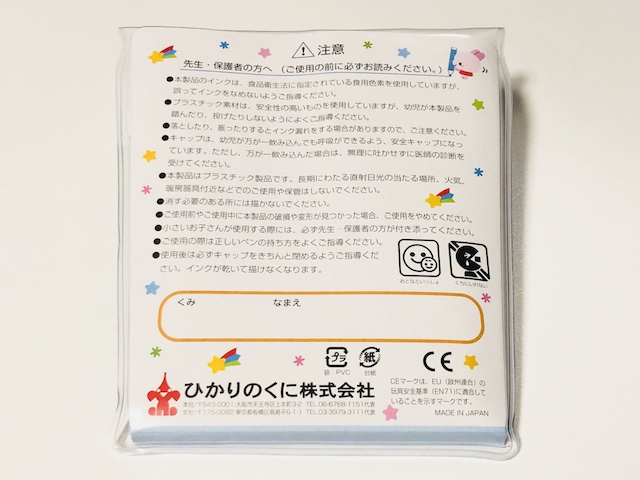 注意
先生・保護者の方へ （ご使用の前に必ずお読みください。）
●本製品のインクは、食品衛生法に指定されている食用色素を使用していますが、
誤ってインクをなめないようご指導ください。
●プラスチック素材は、安全性の高いものを使用していますが、幼児が本製品を
踏んだり、投げたりしないようによくご指導ください。
●落としたり、振ったりするとインク漏れをする場合がありますので、ご注意ください。
●キャップは、幼児が万が一飲み込んでも呼吸ができるよう、安全キャップになっ
ています。ただし、万が一飲み込んだ場合は、無理に吐かせずに医師の診断を
受けてください。
●本製品はプラスチック製品です。長期にわたる直射日光の当たる場所、火気、
暖房器具付近などでのご使用や保管はしないでください。
●消す必要のある所には描かないでください。
●ご使用前やご使用中に本製品の破損や変形が見つかった場合、ご使用をやめてください。
●小さいお子さんが使用する際には、必ず先生・保護者の方が付き添ってください。
●ご使用の際は正しいペンの持ち方をよくご指導ください。
●使用後は必ずキャップをきちんと閉めるようご指導くだ
さい。インクが乾いて描けなくなります。
おとなといっしょ
くちにいれない
くみ なまえ
プラ
袋：PVC
紙
台紙
CE
ひかりのくに株式会社
本社/〒543-0001 大阪市天王寺区上本町3-2 TEL 06-6768-1151代表
支社/〒175-0082 東京都板橋区高島平6-1-1 TEL 03-3979-3111代表
CEマークは、EU（欧州連合）の
玩具安全基準（EN71）に適合して
いることを示すマークです。
MADE IN JAPAN